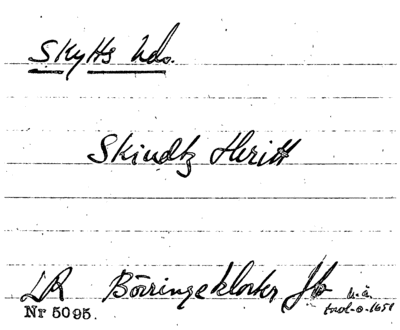 Skytts hds.
Skindtz Heritt
LR Börringekloster Jb u.å.
Nr 5095. 1651